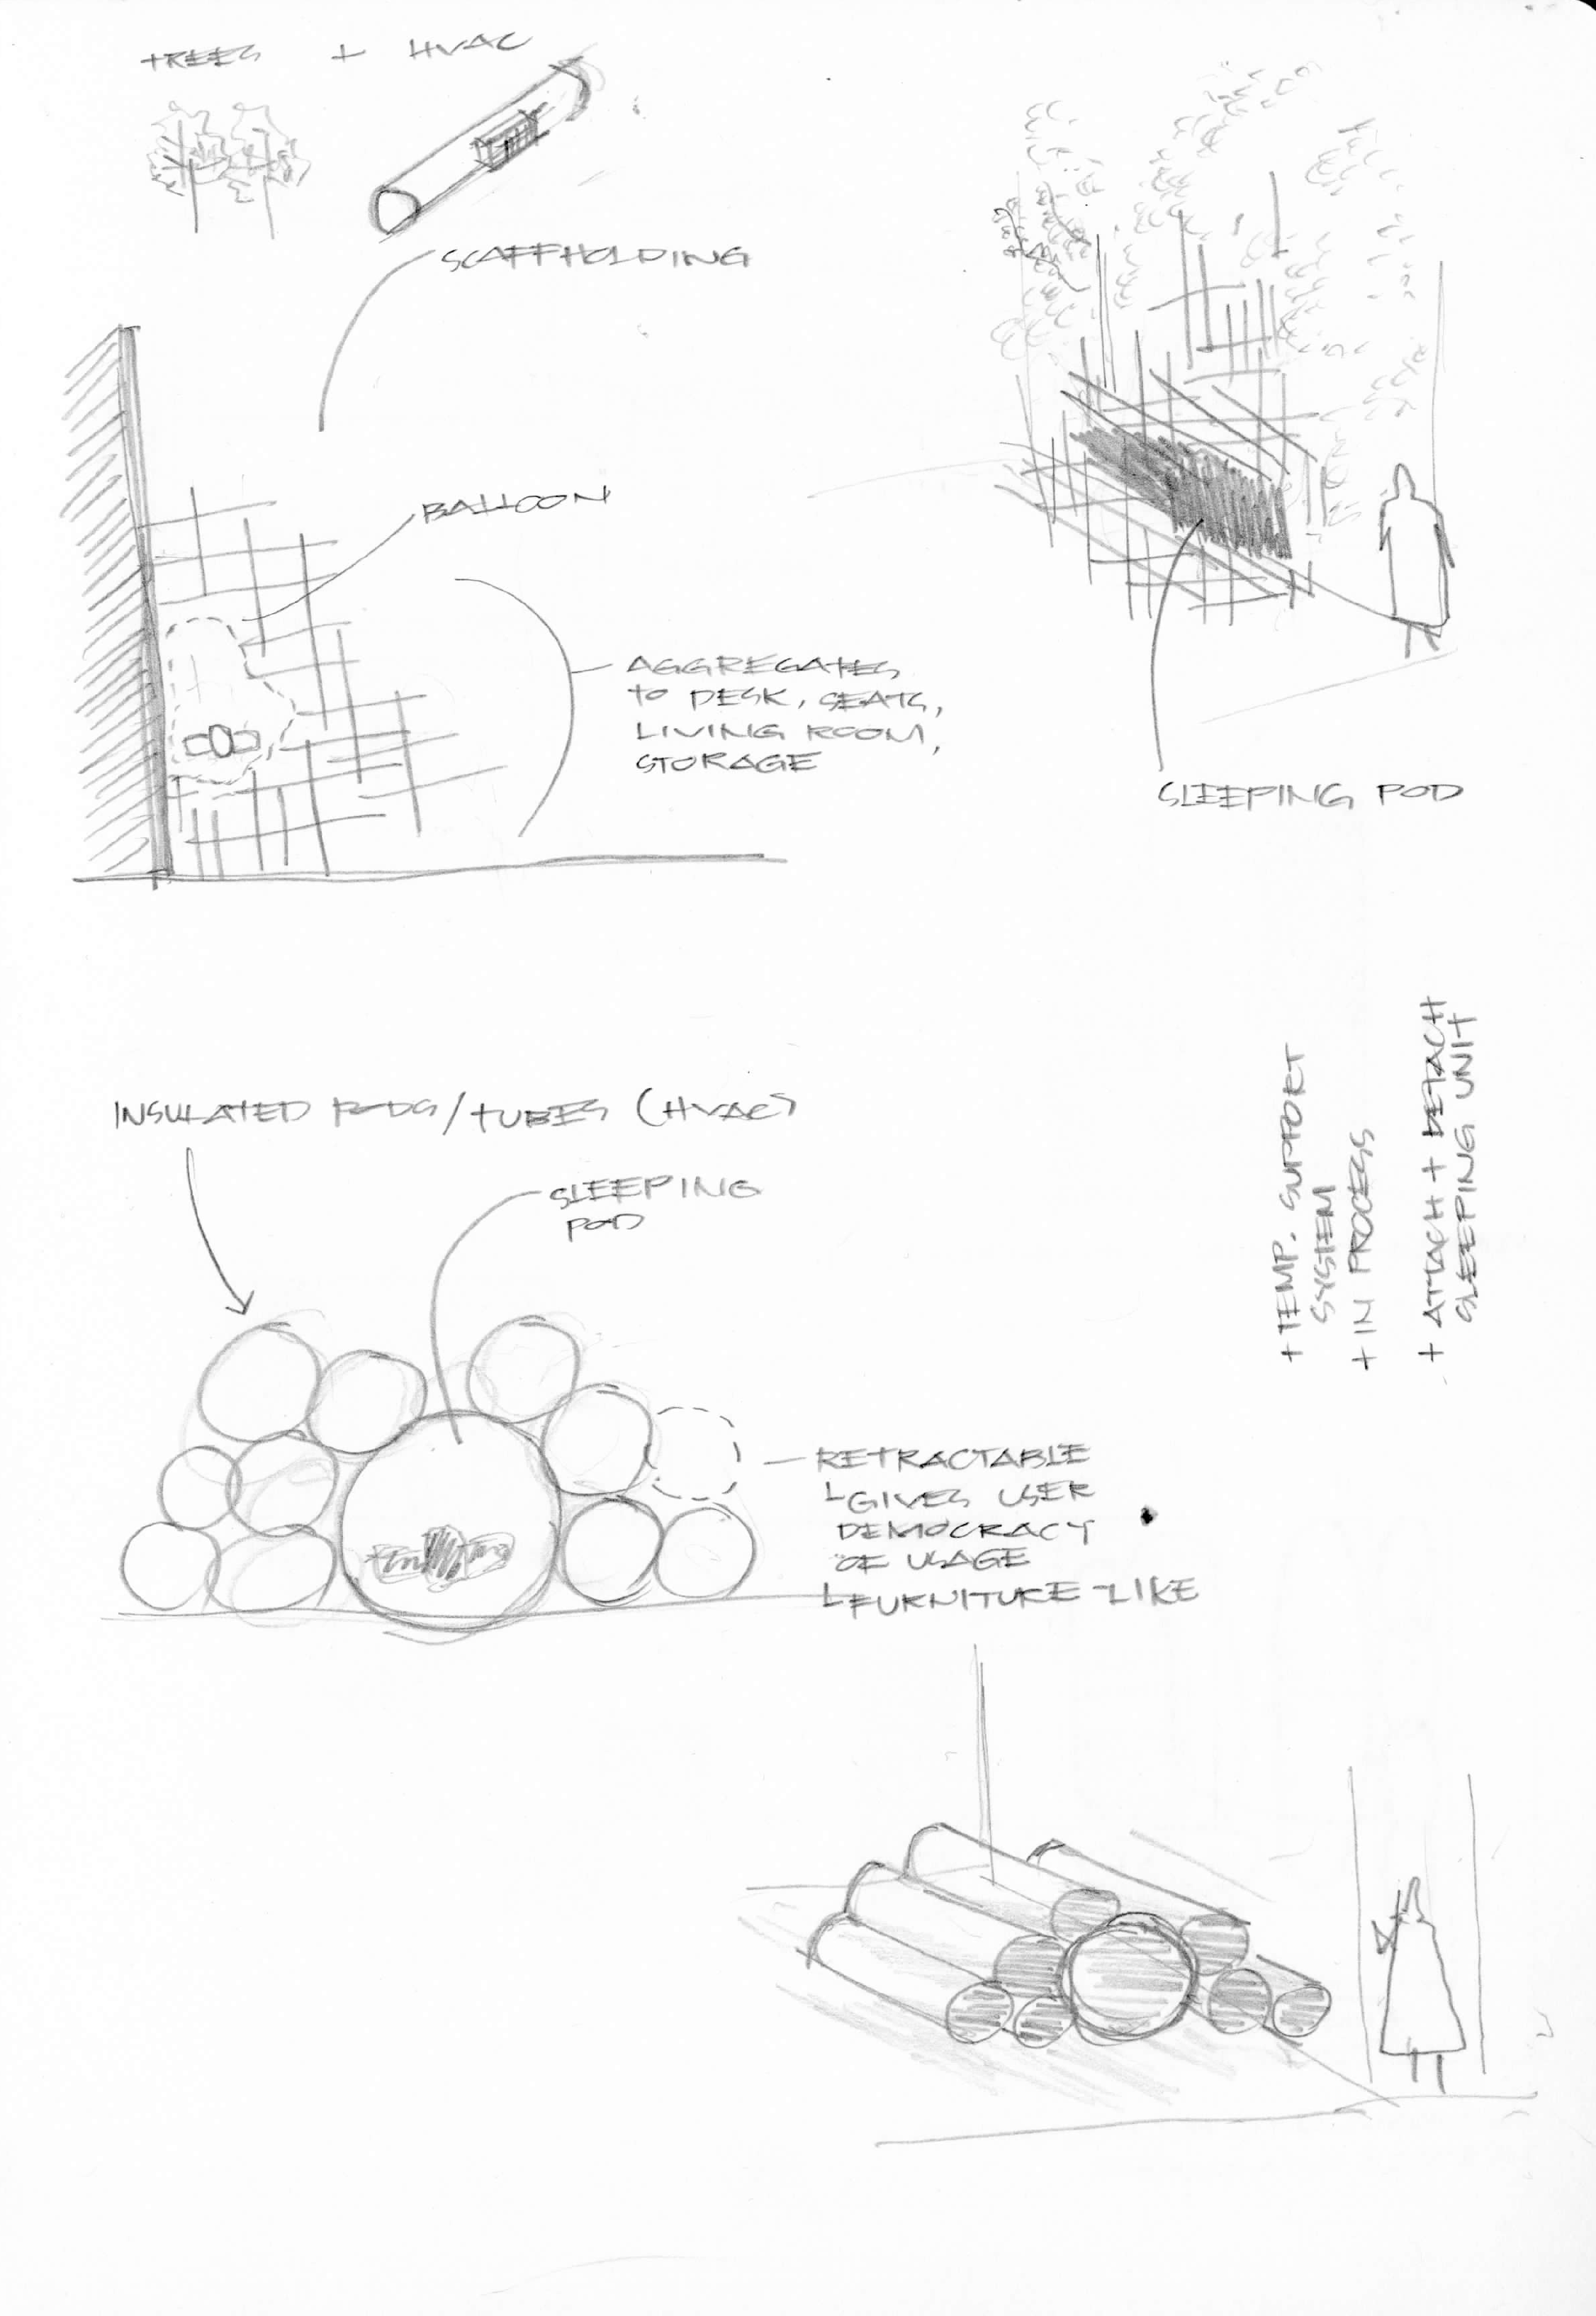 TREES + HVAC
SCAFFHOLDING
BALLOON
AGGREGATES
TO DESK, SEATS,
LIVING ROOM,
STORAGE
SLEEPING POD
INSULATED PODS/TUBES (HVAC)
SLEEPING
POD
+ TEMP. SUPPORT
SYSTEM
+ IN PROCESS
+ ATTACH + DETACH
SLEEPING UNIT
RETRACTABLE
GIVES USER
DEMOCRACY
OF USAGE
FURNITURE-LIKE